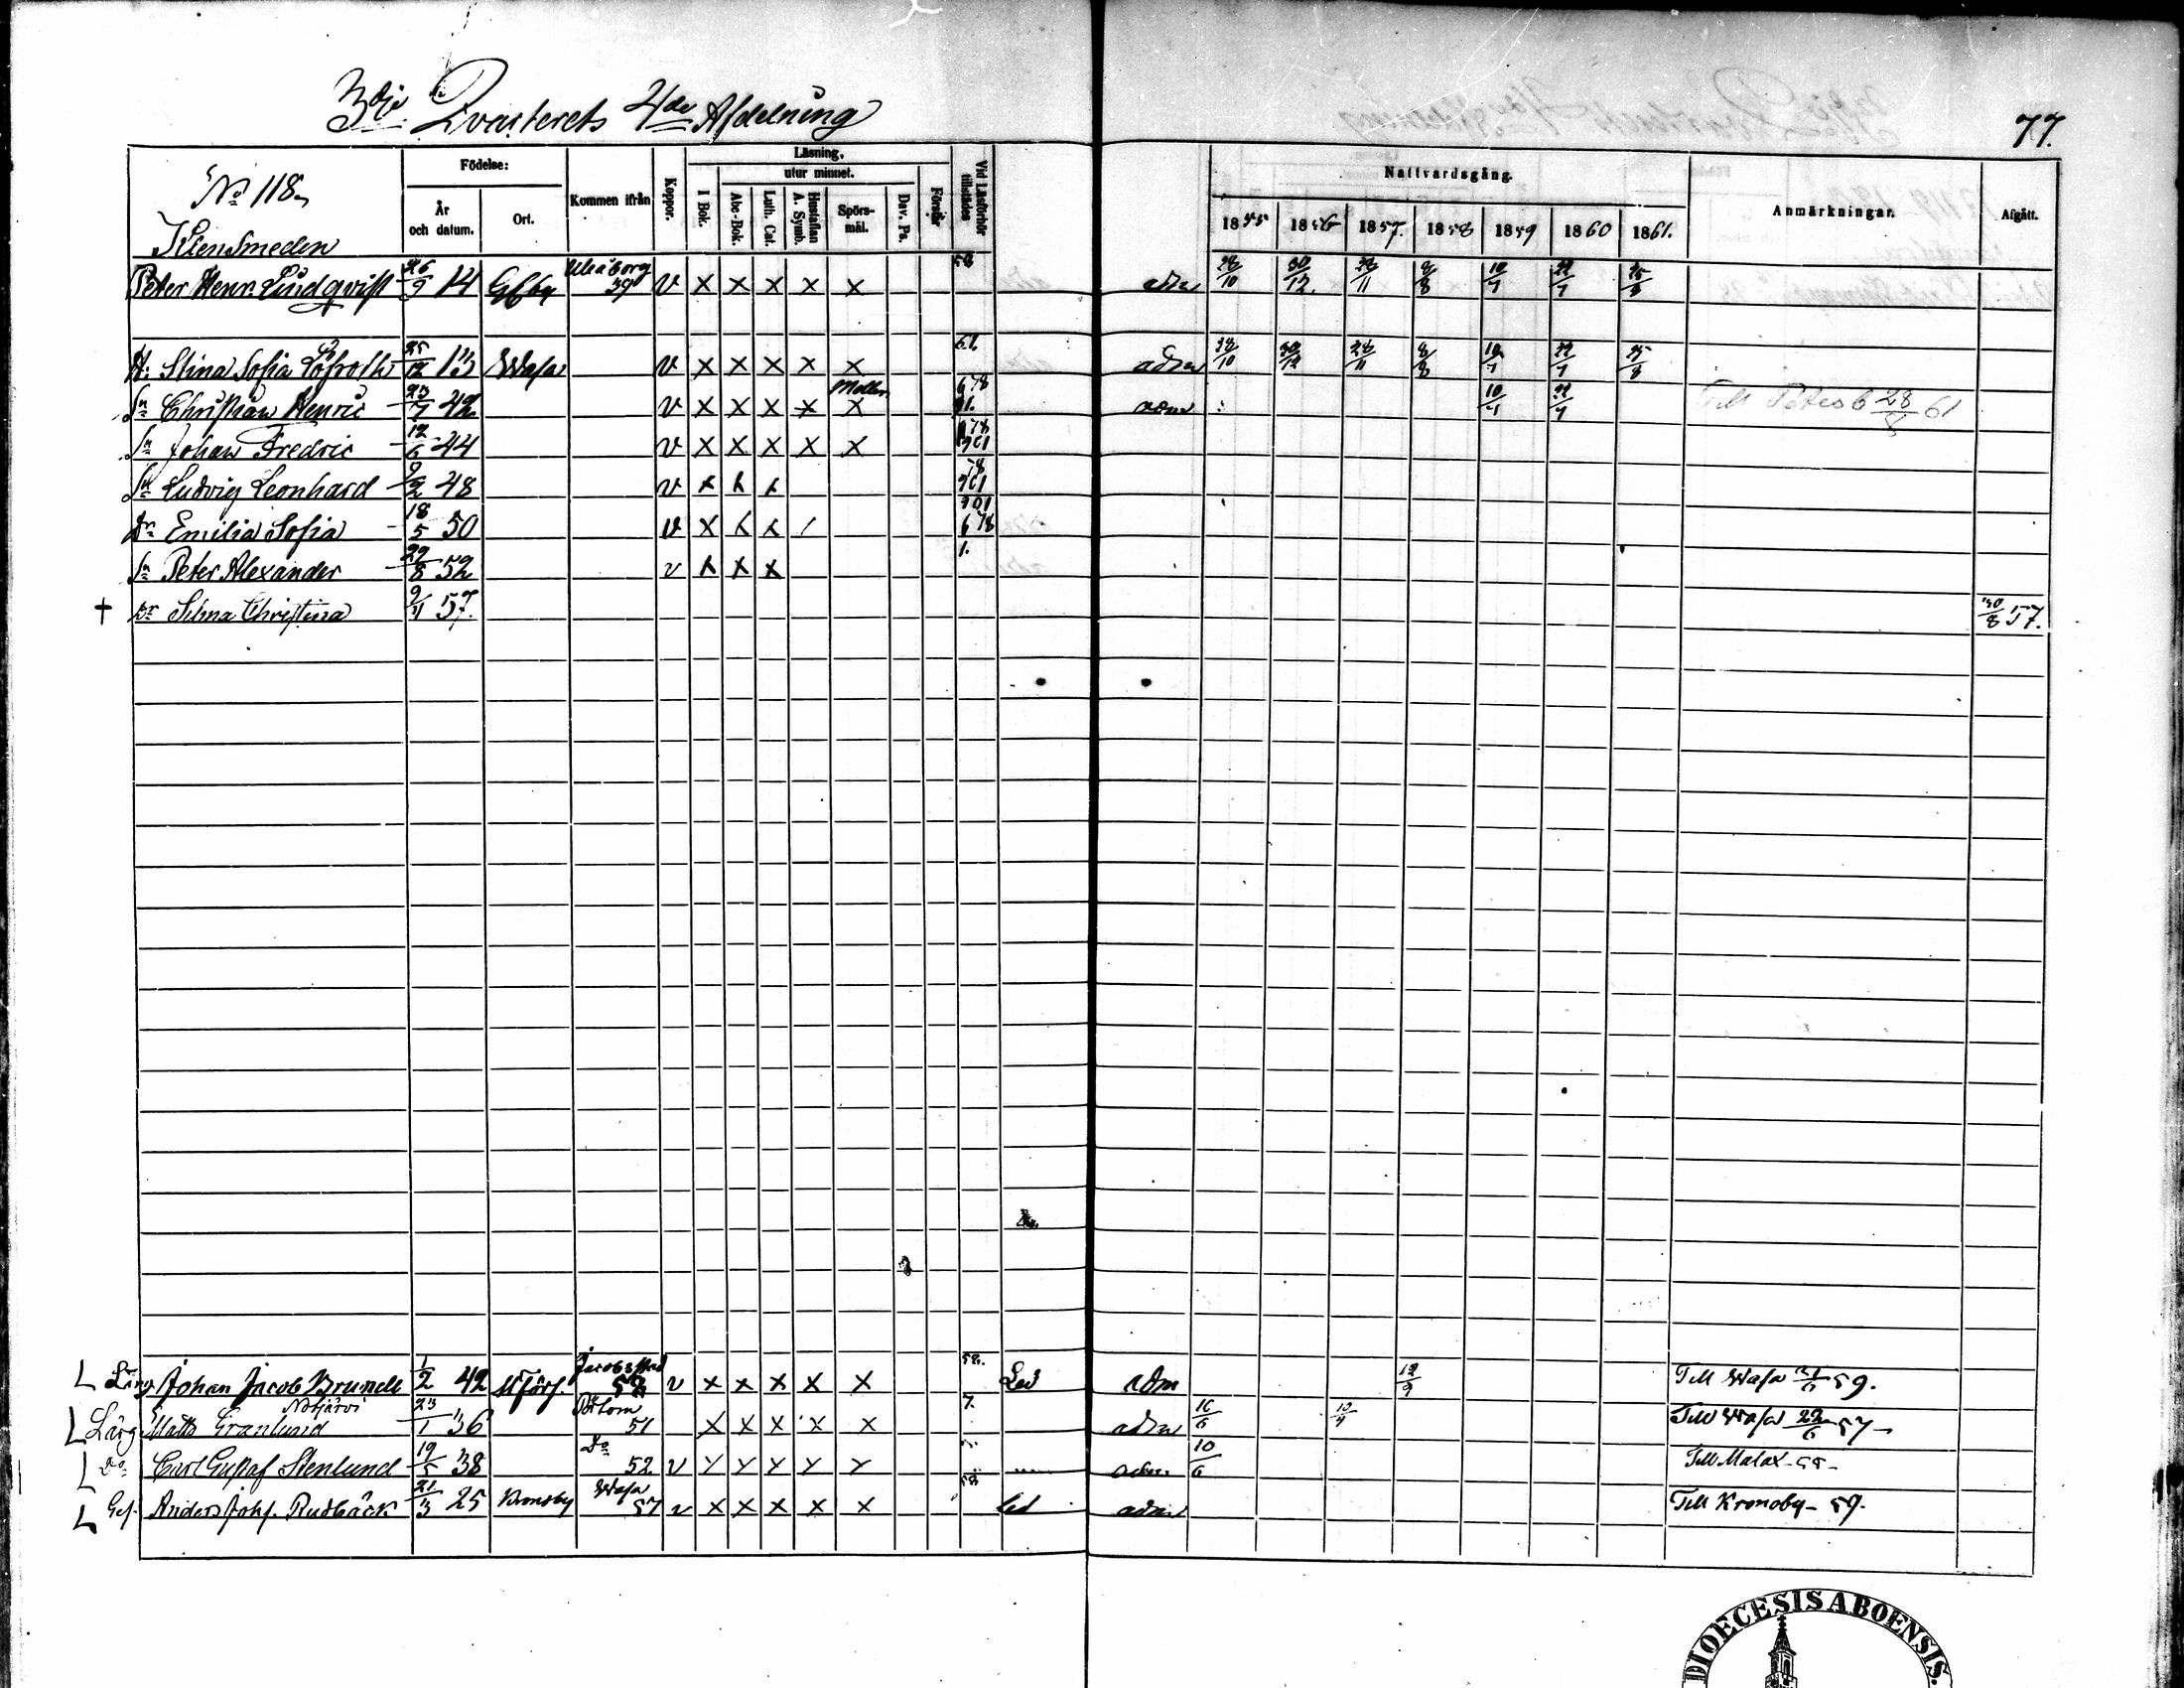 3dje Qvarterets 4de Afdelning
77.
No 118.
Klensmeden
Födelse: År och datum. Ort. Kommen ifrån Koppor. Läsning. I Bok. utur minnet. Abc-Bok. Luth. Cat. Hustaflan A. Symb. Spörs-mål. Dav. Ps. Förstår Vid Läsförhör tillstädes Nattvardsgång. 1855 1856 1857. 1858 1859 1860 1861. Anmärkningar. Afgått.
Peter Henr. Lindqvist 26/9 14 Uleåborg 39 v x x x x x 58 adm 28/10 30/12. 28/11 8/8 10/7 22/7 25/8
H: Stina Sofia Löfroth 25/12 13 Wasa v x x x x x 61. adm 28/10 30/12 28/11 8/8 10/7 22/7 25/8
Sn Christian Henric 23/7 42 v x x x x x adm 10/7 22/7 Till Petersb 28/8 61
Sn Johan Fredric 12/6 44 v x x x x x
Sn Ludvig Leonhard 9/2 48 v x x x
Dr Emilia Sofia 18/5 50 v x x x / 678
Sn Peter Alexander 29/8 52 v x x x 1.
† Dr Selma Christina 9/4 57. 30/8 57.
L Lärg Johan Jacob Brunell 1/2 42 Jacobstad 58 v x x x x x 58. Led adm 12/9 Till Wasa 59.
L Lärg Matts Granlund 23/1 36 Pörtom 51 x x x x x 7. adm 16/6 10/4 Till Wasa 22/6 57
L Do Carl Gustaf Stenlund 19/5 38 Do 52 v x x x x x adm. 10/6 Till Malax 55
L Ges. Anders Joh. Rudbäck 21/3 25 Kronoby Wasa 57 v x x x x x 58 led adm Till Kronoby 59.
DIOECESIS ABOENSIS.